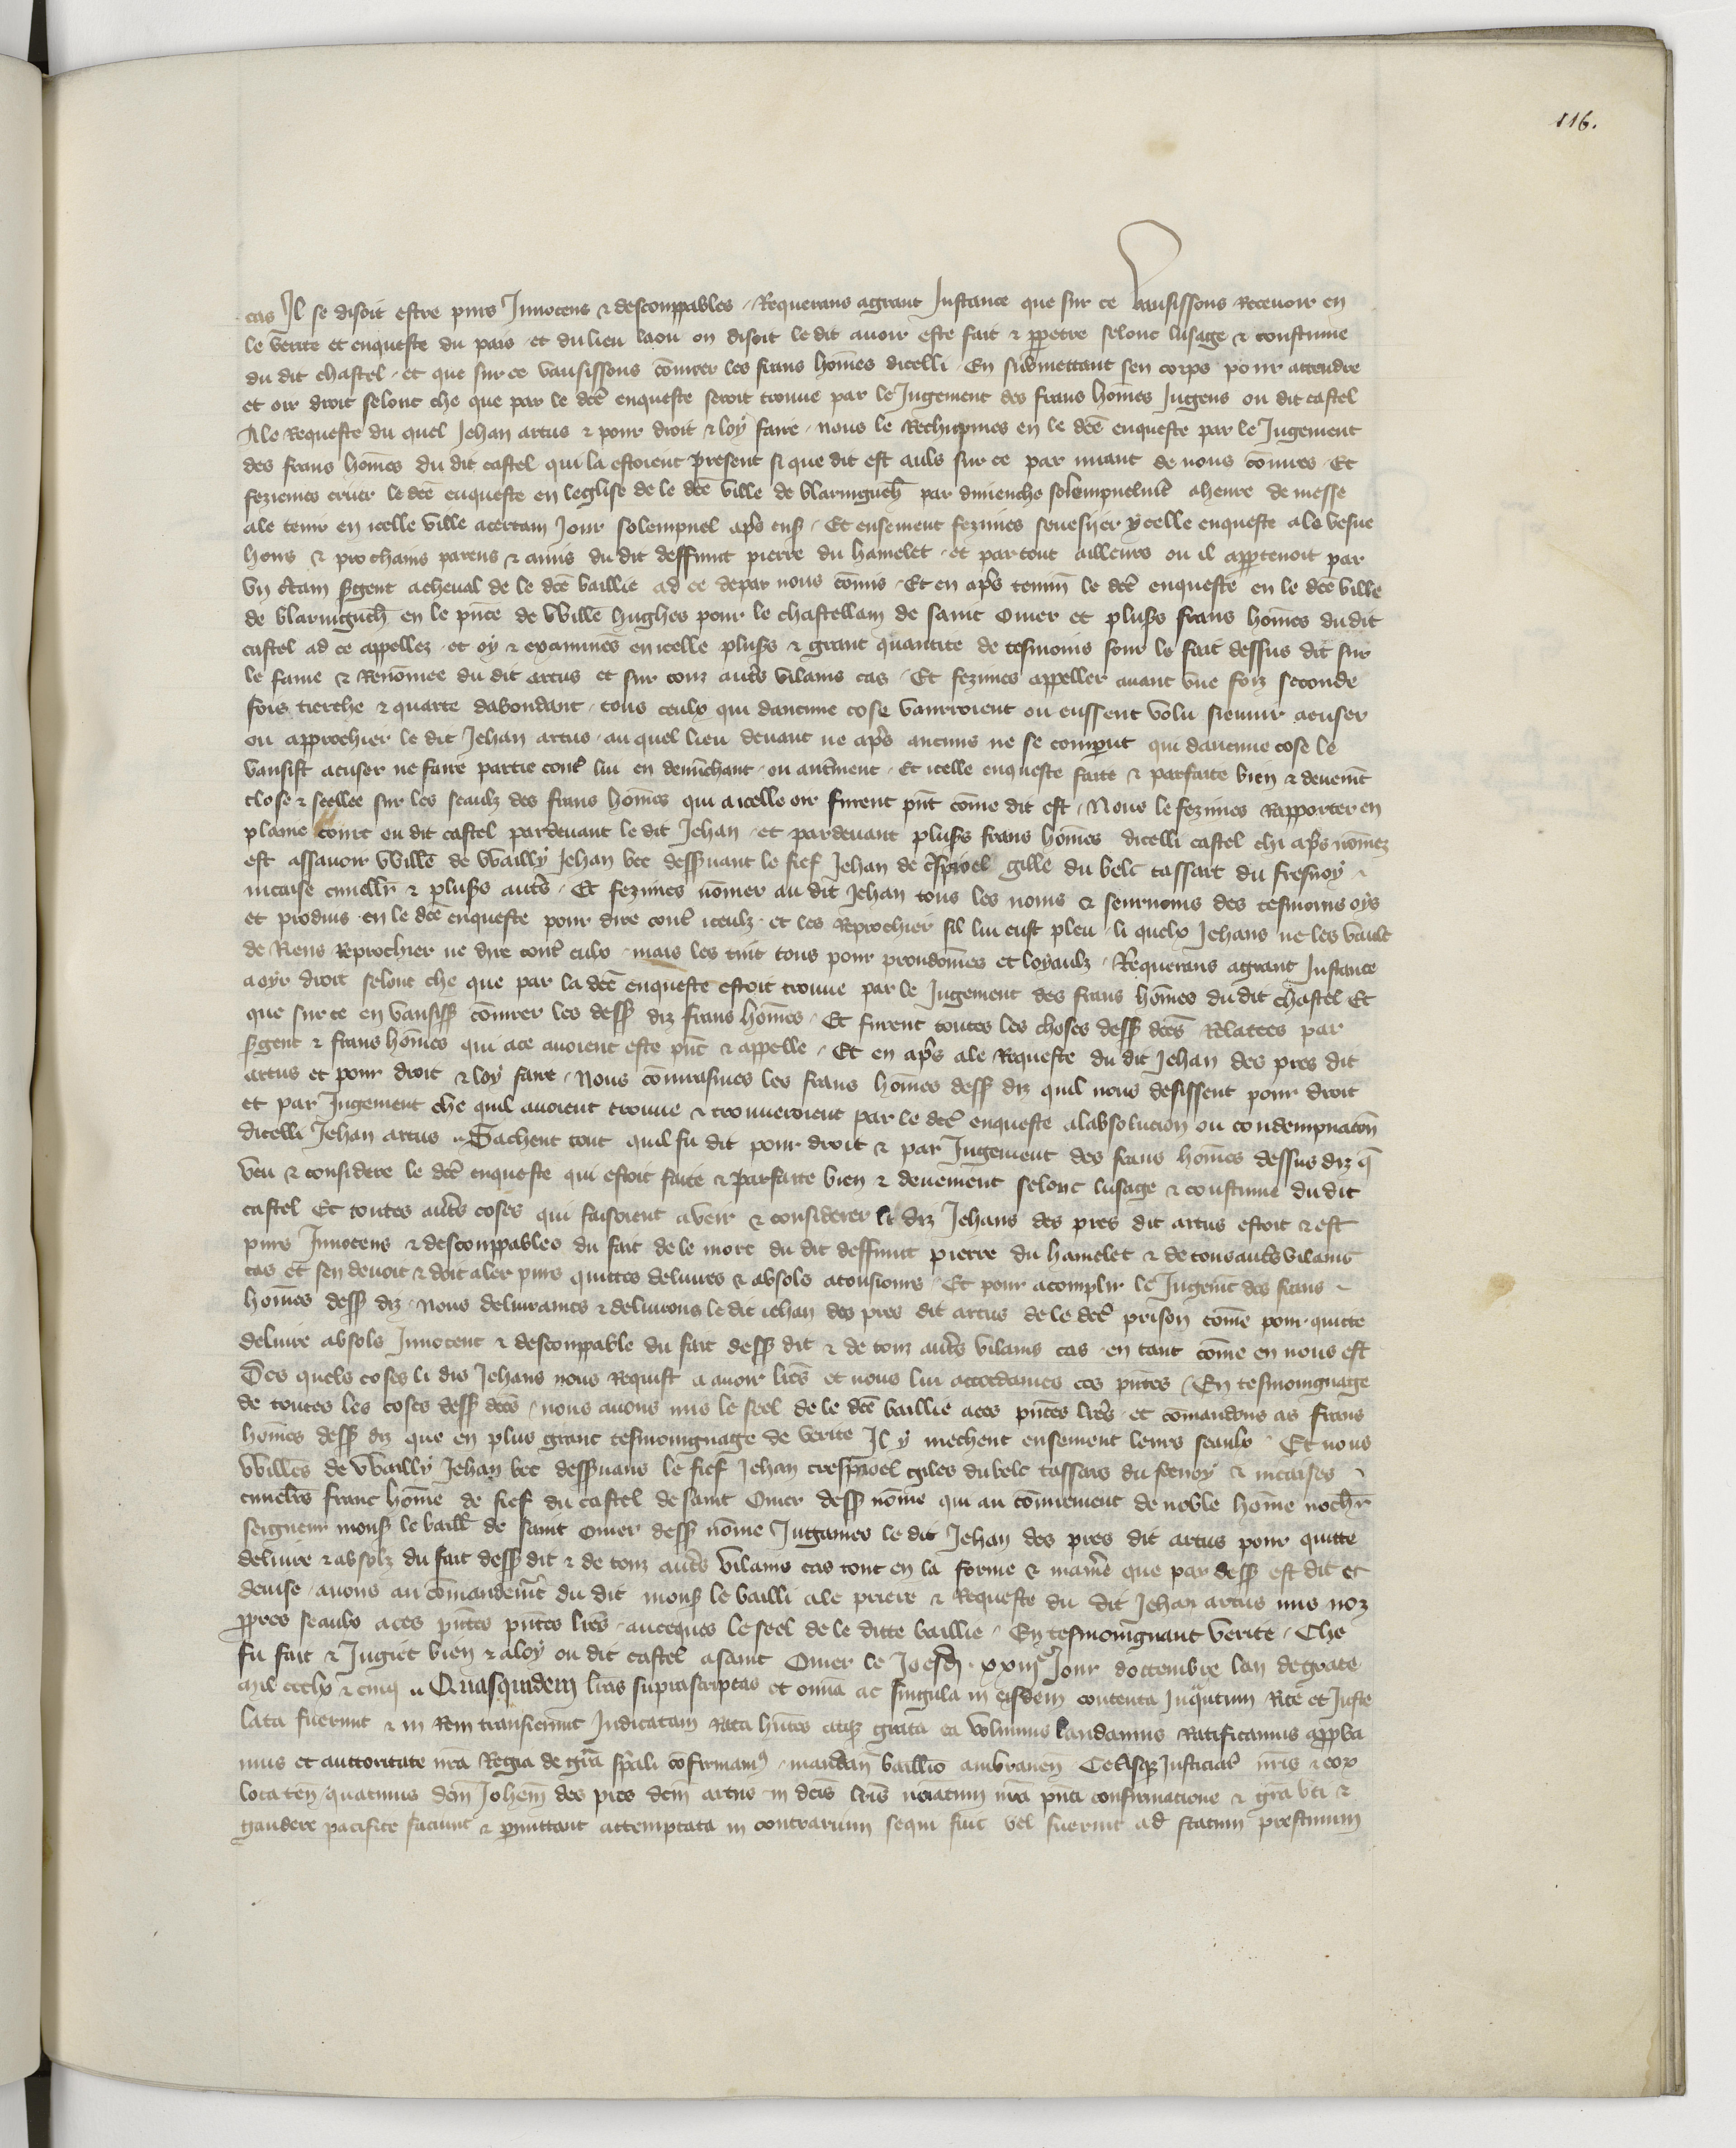 116.
cas Il se disoit estre purs Innocens & descouppables. Requerans a grant Instance que sur ce vausissons recevoir en
le verite et enqueste du pais et du lieu la ou on disoit le dit avoir este fait & ppetre selonc lusage & coustume
du dit chastel. et que sur ce vausissons conurer les frans hom̄es dicelli. En submettant sen corps pour attendre
et oir droit selonc che que par le dcē enqueste seroit trouve par le Jugement des frans hom̄es Jugens ou dit castel
A le Requeste du quel Jehan artus & pour droit & loy faire. nous le Rechupmes en le dcē enqueste par le Jugement
des frans hom̄es du dit castel qui la estoient present si que dit est auls sur ce par avant de nous conures. Et
feziemes crier le dcē enqueste en leglise de le dcē ville de blaringueh̄ par diemenche solempnelmt̄ a heure de messe
a le tenir en icelle ville a certain Jour solempnel apṝs ens̄. Et ensement fezimes senefijer ycelle enqueste a le vesue
hoirs & prochains parens & amis du dit deffunct pierre du hamelet. et par tout ailleurs ou il appartenoit par
vn c̄tain s̄gent a cheval de le dcē baillie ad ce de par nous com̄is. Et en apṝs tenim̄ le dcē enqueste en le dcē ville
de blaringueh̄ en le pn̄ce de Will̄e hughes pour le chastellain de saint Omer et plus̄s frans hom̄es du dit
castel ad ce appellez. et oy & examines en icelle plus̄s & grant quantite de tesmoins sour le fait dessus dit sur
le fame & Renom̄ee du dit artus et sur touz aut̄s vilains cas. Et fezimes appeller avant une foiz seconde
fois tierche & quarte dabondant. tous ceulx qui daucune cose vaurroient ou eussent volu sieuuir acuser
ou approchier le dit Jehan artus. au quel lieu devant ne apṝs aucuns ne se comparut qui daucune cose le
vausist acuser ne faire partie cont̄ lui en denunchant. ou aut̄ment. Et icelle enqueste faite & parfaite bien & deuemt̄
close & seellee sur les seaulz des frans hom̄es qui a icelle oir furent pn̄t com̄e dit est. Nous le fezimes Rapporter en
plaine court ou dit castel par devant le dit Jehan. et par devant plus̄s frans hom̄es dicelli castel chi apṝs nom̄ez
est assavoir Will̄e de Wailly Jehan bee dess̄uant le fief Jehan de cr̄sproel gille du belc tassart du fresnoy
nicaise cuuell̄r & plus̄s aut̄s. Et fezimes nom̄er au dit Jehan tous les noms & seurnoms des tesmoins oys
et produis en le dcē enqueste pour dire cont̄ iceulz. et les Reprochier sil lui eust pleu. li quelx Jehans ne les vault
de Riens Reprochier ne dire cont̄ eulx. mais les tint tous pour proudom̄es et loyaulz. Requerans a grant Instance
a oyr droit selonc che que par la dcē enqueste estoit trouve par le Jugement des frans hom̄es du dit chastel Et
que sur ce en vausiss̄ conurer les dess̄ diz frans hom̄es. Et furent toutes les choses dess̄ dc̄es Relatees par
s̄gent & frans hom̄es qui a ce avoient este pn̄t & appelle. Et en apṝs a le Requeste du dit Jehan des pres dit
artus et pour droit & loy faire. Nous conurasmes les frans hom̄es dess̄ diz quil nous desissent pour droit
et par Jugement che quil avoient trouve & trouveroient par le dcē enqueste a labsolucion ou condempnacon̄
dicelli Jehan artus. Sachent tout quil fu dit pour droit & par Jugement des frans hom̄es dessus diz q̄
veu & considere le dcē enqueste qui estoit faite & parfaite bien & deuement selonc lusage & coustume du dit
castel Et toutes aut̄s coses qui faisoient a veir & considerer li diz Jehans des pres dit artus estoit & est
purs Innocens & descouppables du fait de le mort du dit deffunct pierre du hamelet & de tous aut̄s vilains
cas et sen devoit & doit aler purs quittes delivres & absols a tousiours. Et pour acomplir le Jugemt̄ des frans
hom̄es dess̄ diz. Nous delivrames & delivrons le dit iehan des pres dit artus de le dcē prison com̄e pour quitte
delivre absols Innocent & descouppable du fait dess̄ dit & de touz aut̄s vilains cas en tant com̄e en nous est
Des quels coses li dis Jehans nous Requist a avoir lr̄es et nous lui accordames ces pn̄tes. En tesmoingnage
de toutes les coses dess̄ dc̄es. nous avons mis le seel de le dcē baillie a ces pn̄tes lr̄es. et com̄andons as frans
hom̄es dess̄ diz que en plus grant tesmoingnage de verite Il y mechent ensement leurs seaulx. Et nous
Will̄es de Wailly Jehan bee dess̄uans le fief Jehan cresproel giles du belc tassars du frenoy & nicaises
cuuel̄rs franc hom̄e de fief du castel de saint Omer dess̄ nom̄e qui au conurement de noble hom̄e no ch̄r
seigneur mons̄ le baill̄ de saint Omer dess̄ nom̄e Jugames le dit Jehan des pres dit artus pour quitte
delivre & absolz du fait dess̄ dit & de touz aut̄s vilains cas tout en la forme & manr̄e que par dess̄ est dit et
devise. avons au com̄andemt̄ du dit mons̄ le bailli a le priere & Requeste du dit Jehan artus mis noz
ppres seaulx a ces pn̄tes pn̄tes lr̄es. aveques le seel de le ditte baillie. En tesmoingnant verite. Che
fu fait & Jugiet bien & a loy ou dit castel a saint Omer le Joesdi. xxiije Jour doctembre lan de grace
mil ccclx & cinq. Quasquidem lr̄as suprascriptas et om̄ia ac singula in eisdem contenta Inquātum Rite et Juste
lata fuerunt & in Rem transierunt Judicatam Rata hn̄tes atq̄ grata ea volumus laudamus Ratificamus appba
mus et auctoritate nr̄a Regia de gr̄a sp̄ali confirmam̄. mandan̄ baillivo ambianen̄ Cetisq̄ Justiciar̄ nr̄is & eor̄
loca ten̄. quatinus dc̄m Johem̄ des pres dc̄m artus in dc̄is lr̄is no̅iatum nr̄a pn̄ti confirmatione & gr̄a uti &
gaudere pacifice faciant & p̄mittant attemptata in contrarium sequi sint vel fuerint ad statum prestinum